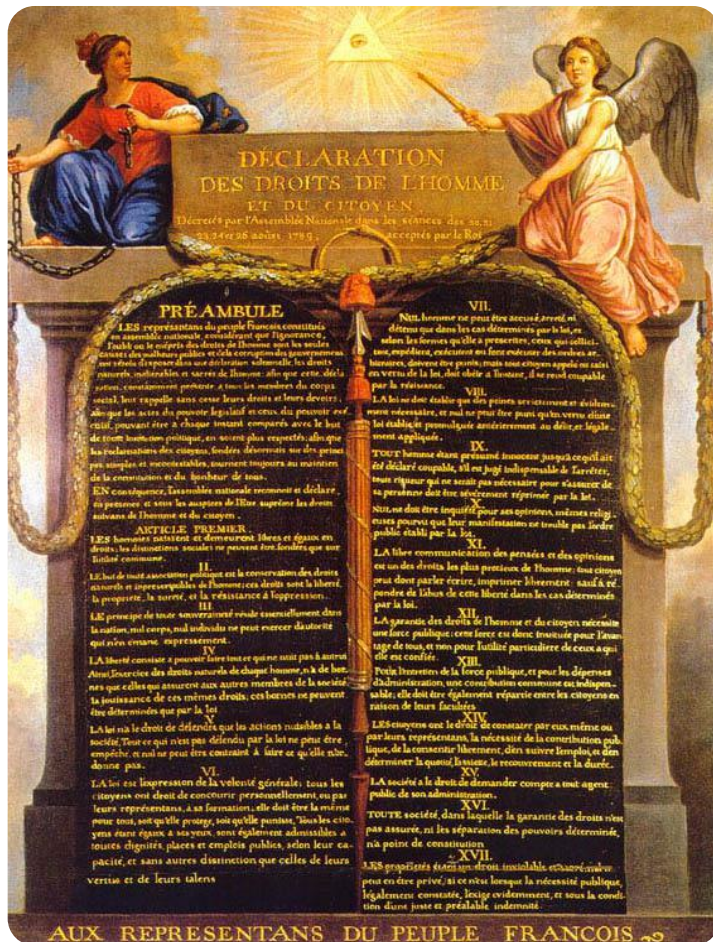 DÉCLARATION
DES DROITS DE L'HOMME
ET DU CITOYEN
Décretés par l'Assemblée Nationale dans les séances des 20, 21
23, 24 et 26 aoûst 1789, acceptés par le Roi
PRÉAMBULE
LES représentans du peuple Francois, constitués
en assemblée nationale, considérant que l'ignorance,
l'oubli ou le mépris des droits de l'homme sont les seules
causes des malheurs publics et de la corruption des gouvernemens
ont résolu d'exposer dans une déclaration solemnelle, les droits
naturels, inaliénables et sacrés de l'homme; afin que cette décla
ration, constamment présente à tous les membres du corps
social, leur rappelle sans cesse leurs droits et leurs devoirs;
afin que les actes du pouvoir législatif et ceux du pouvoir exé
cutif, pouvant être à chaque instant comparés avec le but
de toute institution politique, en soient plus respectés; afin que
les reclamations des citoyens, fondées désormais sur des princi
pes simples et incontestables, tournent toujours au maintien
de la constitution et du bonheur de tous.
EN conséquence, l'assemblée nationale reconnoit et déclare,
en présence et sous les auspices de l'Etre suprême les droits
suivans de l'homme et du citoyen.
ARTICLE PREMIER.
LES hommes naissent et demeurent libres et égaux en
droits; les distinctions sociales ne peuvent être fondées que sur
l'utilité commune.
II.
LE but de toute association politique est la conservation des droits
naturels et imprescriptibles de l'homme; ces droits sont la liberté,
la propriété, la sureté, et la résistance à l'oppression.
III
LE principe de toute souveraineté réside essentiellement dans
la nation, nul corps, nul individu ne peut exercer d'autorité
qui n'en émane expressement.
IV
LA liberté consiste à pouvoir faire tout ce qui ne nuit pas à autrui
Ainsi, l'exercice des droits naturels de chaque homme, n'a de bor
nes que celles qui assurent aux autres membres de la société
la jouissance de ces mêmes droits; ces bornes ne peuvent
être déterminées que par la loi
V
LA loi n'a le droit de défendre que les actions nuisibles à la
société. Tout ce qui n'est pas défendu par la loi ne peut être
empêché, et nul ne peut être contraint à faire ce qu'elle n'or-
donne pas.
VI.
LA loi est l'expression de la volonté générale; tous les
citoyens ont droit de concourir personnellement, ou par
leurs représentans, à sa formation; elle doit être la même
pour tous, soit qu'elle protege, soit qu'elle punisse. Tous les cito
yens étant égaux à ses yeux, sont également admissibles à
toutes dignités, places et emplois publics, selon leur ca
pacité, et sans autres distinction que celles de leurs
vertus et de leurs talens
VII.
NUL homme ne peut être accusé, arreté, ni
détenu que dans les cas déterminés par la loi, et
selon les formes qu'elle a prescrites, ceux qui sollici-
tent, expédient, exécutent ou font exécuter des ordres ar-
bitraires, doivent être punis; mais tout citoyen appelé ou saisi
en vertu de la loi, doit obéir à l'instant, il se rend coupable
par la résistance.
VIII.
LA loi ne doit établir que des peines strictement et évidem-
ment nécessaire, et nul ne peut être puni qu'en vertu d'une
loi établie et promulguée antérierement au délit, et légale-
ment appliquée.
IX.
TOUT homme étant présumé innocent jusqu'à ce qu'il ait
été déclaré coupable, s'il est jugé indispensable de l'arrêter,
toute rigueur qui ne serait pas nécessaire pour s'assurer de
sa personne doit être sévèrement réprimée par la loi.
X.
NUL ne doit être inquiété pour ses opinions, mêmes religi-
euses pourvu que leur manifestation ne trouble pas l'ordre
public établi par la loi.
XI.
LA libre communication des pensées et des opinions
est un des droits les plus precieux de l'homme; tout citoyen
peut dont parler écrire, imprimer librement; sauf à ré-
pondre de l'abus de cette liberté dans les cas déterminés
par la loi.
XII.
LA garantie des droits de l'homme et du citoyen nécessite
une force publique; cette force est donc instituée pour l'avan
tage de tous, et non pour l'utilité particuliere de ceux à qui
elle est confiée.
XIII.
POUR l'entretien de la force publique, et pour les dépenses
d'administration, une contribution commune est indispen-
sable; elle doit être également répartie entre les citoyens en
raison de leurs facultées
XIV.
LES citoyens ont le droit de constater par eux même ou
par leurs représentans, la nécessité de la contribution pub-
lique, de la consentir librement, d'en suivre l'emploi, et d'en
déterminer la quotité, l'assiete, le recouvrement et la durée.
XV.
LA société a le droit de demander compte a tout agent
public de son administration.
XVI.
TOUTE société, dans laquelle la garantie des droits n'est
pas assurée, ni les séparation des pouvoirs déterminée,
n'a point de constitution
XVII.
LES propriétés étant un droit inviolable et sacré, nul ne
peut en être privé, si ce n'est lorsque la nécessité publique,
légalement constatée, l'exige evidemment, et sous la condi
tion d'une juste et préalable indemnité.
AUX REPRESENTANS DU PEUPLE FRANCOIS